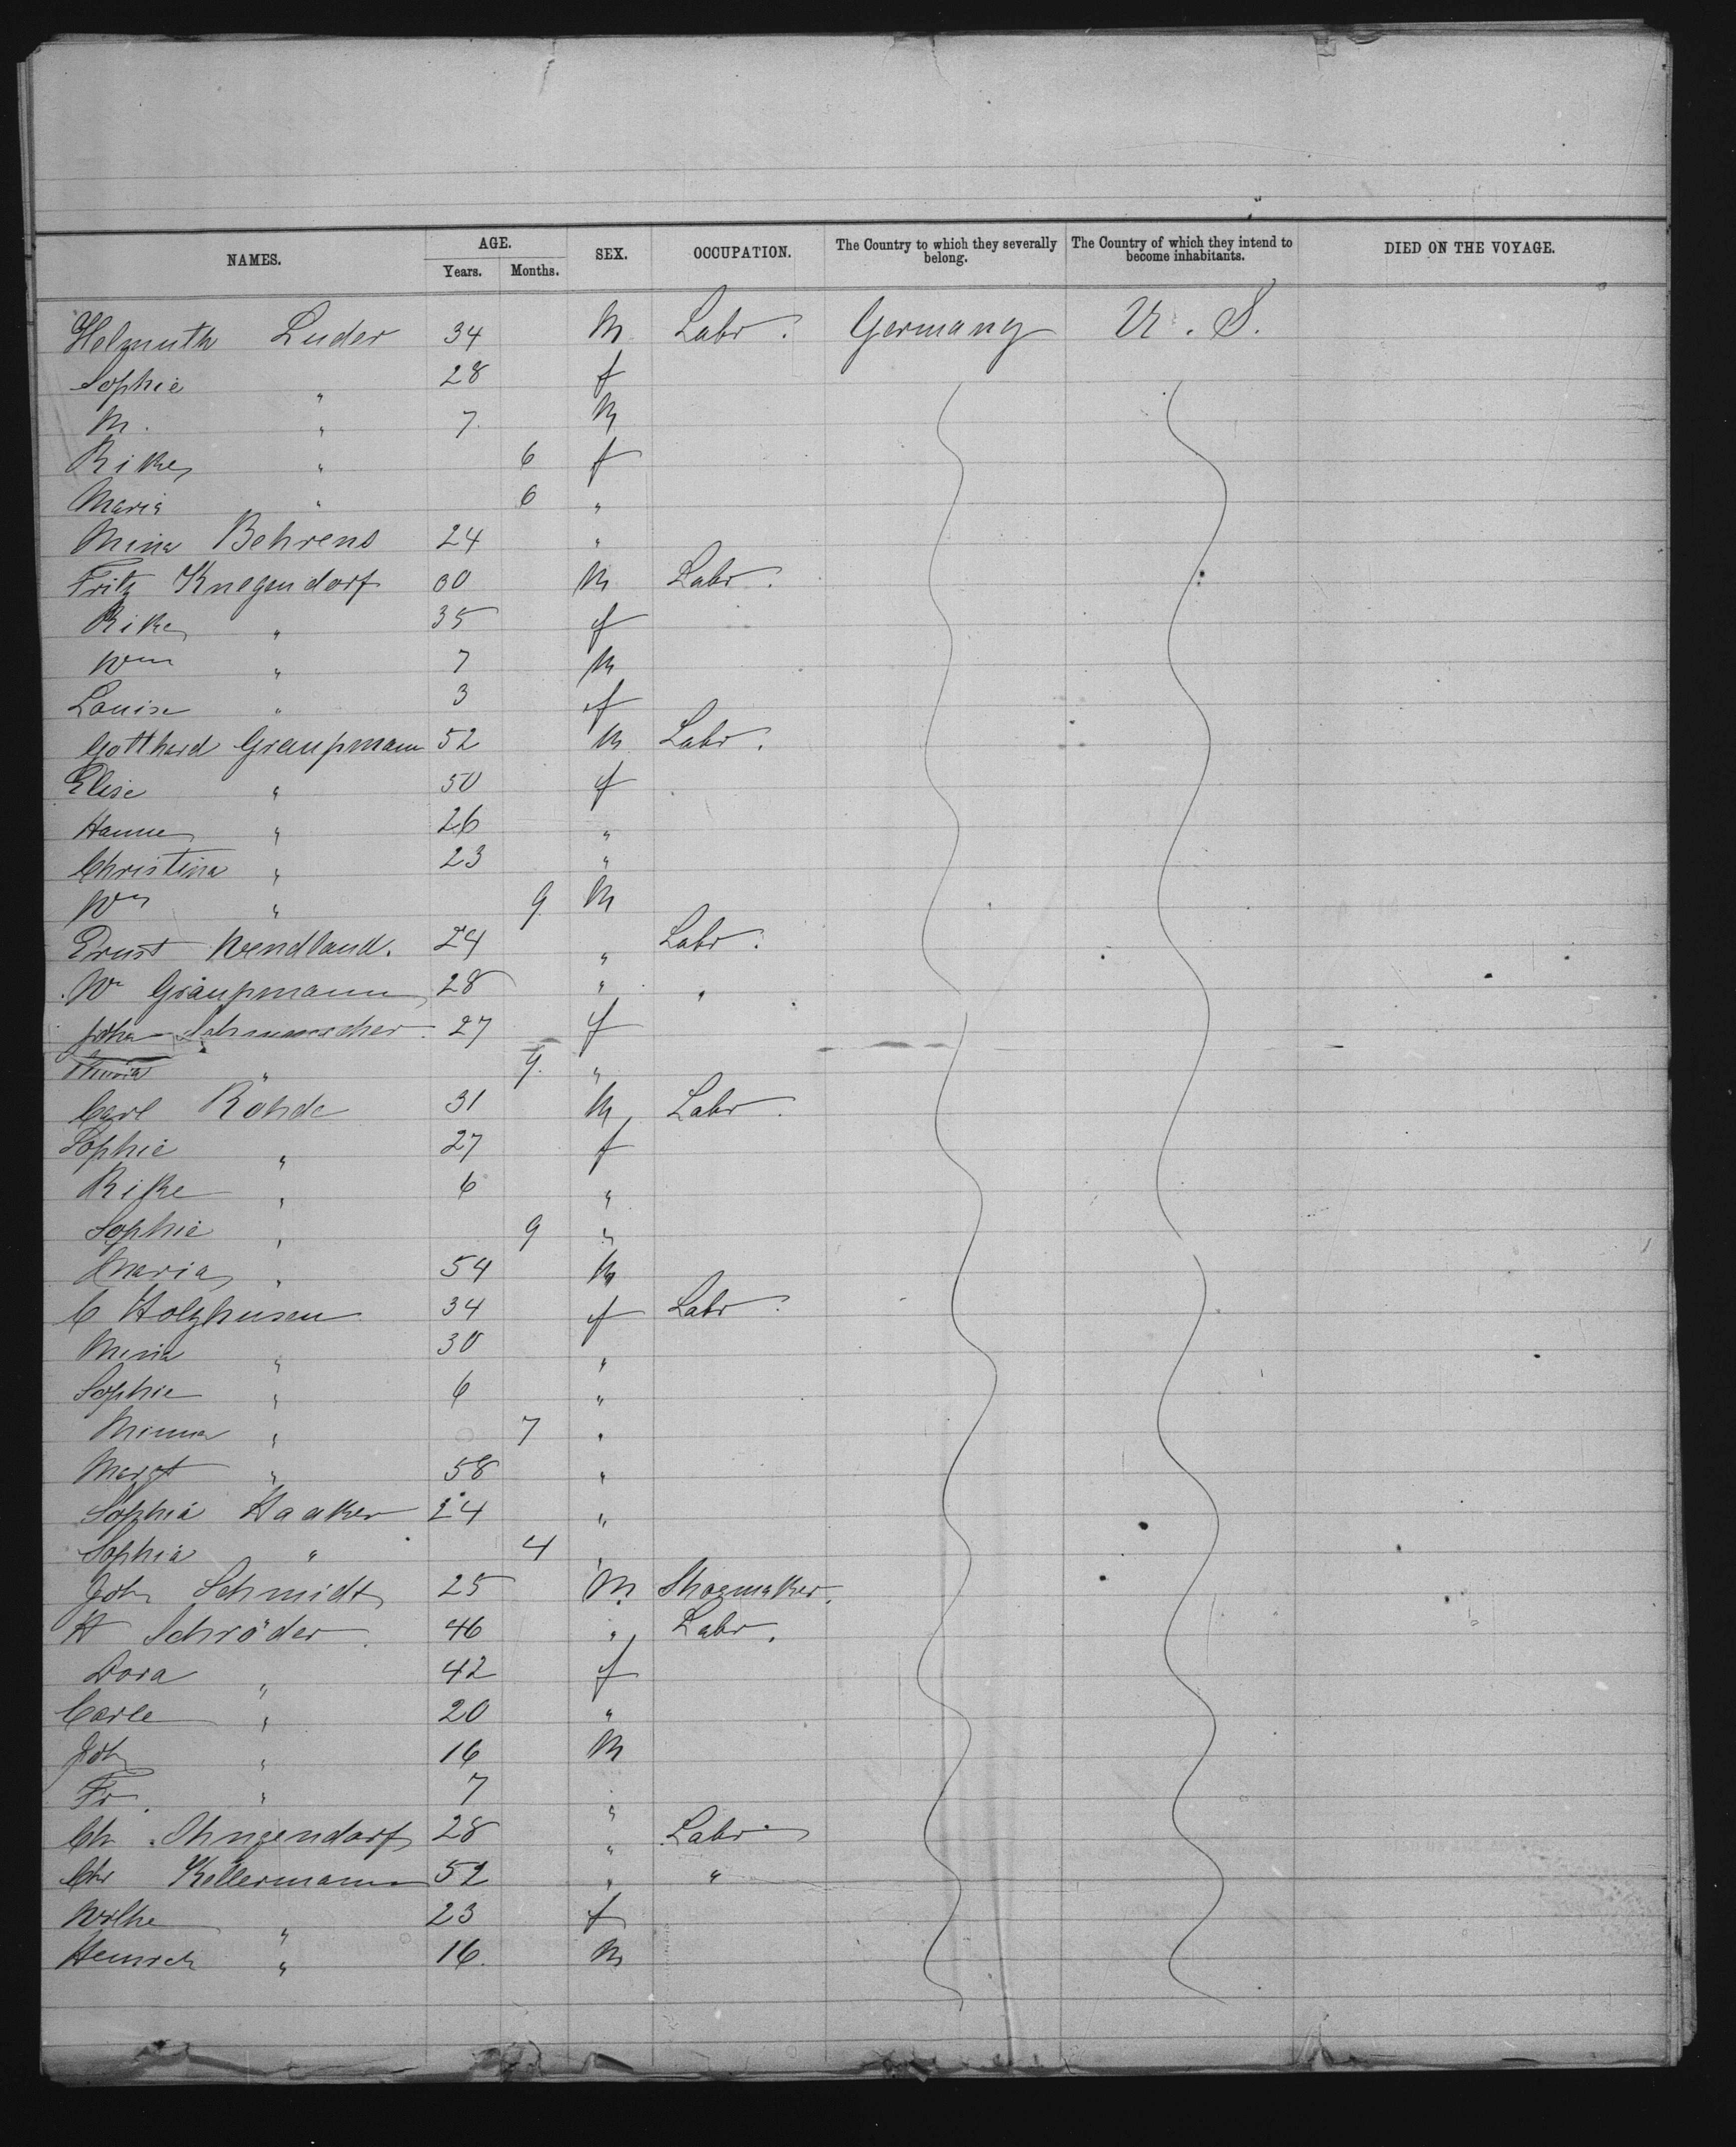 NAMES. AGE. SEX. OCCUPATION. The Country to which they severally belong. The Country of which they intend to become inhabitants. DIED ON THE VOYAGE.
Years. Months.
Helmuth Luder 34 M Labr. Germany U. S.
Sophie " 28 f
M. " 7 M
Rike " 6 f
Maria " 6 "
Mina Behrens 24 "
Fritz Knegendorf 30 M Labr.
Rike " 35 f
Wm " 7 M
Louise " 3 f
Gotthard Graupmann 52 M Labr.
Elise " 50 f
Hanne " 26 "
Christina " 23 "
Wm " 9 M
Ernst Wendland. 24 " Labr.
Wm Graupmann 28 " "
Joha Schumacher 27 f
Maria " 9 "
Carl Rohde 31 M Labr.
Sophie " 27 f
Rike " 6 "
Sophie " 9 "
Maria " 54 M
C Holzhusen 34 f Labr.
Mina " 30 "
Sophie " 6 "
Minna " 7 "
Margt " 58 "
Sophia Haaker 24 "
Sophia " 4 "
Joh Schmidt 25 M Shoemaker.
H Schröder 46 " Labr.
Dora " 42 f
Carle " 20 "
Joh " 16 M
Fr. " 7 "
Ch 28 " Labr
Chr Kellermann 52 " "
Wilhe " 23 f
Heinrch " 16. M